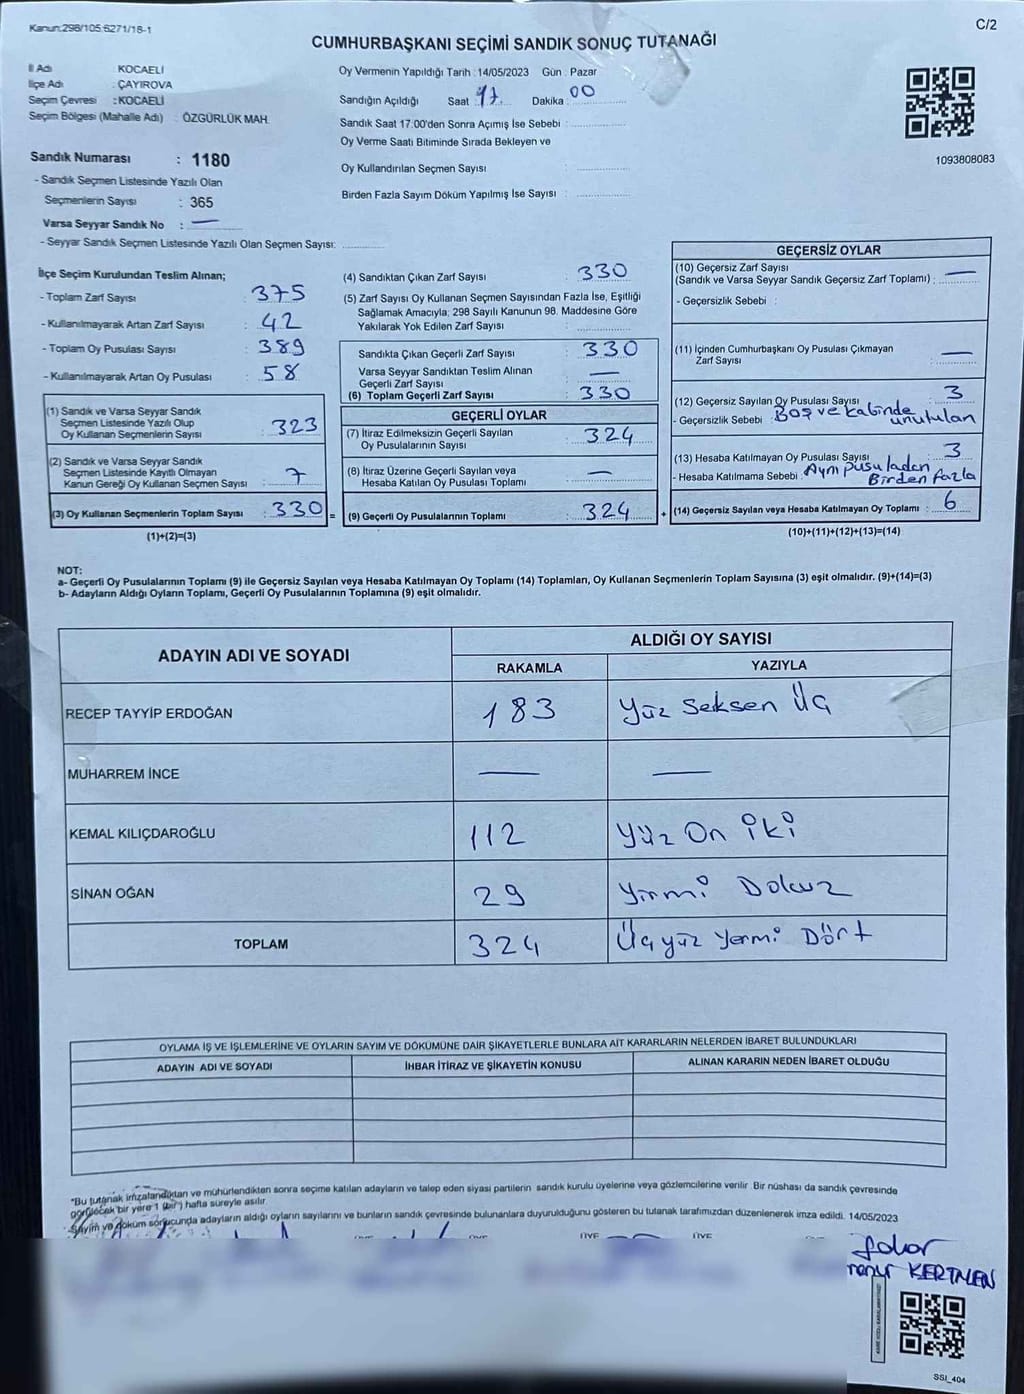 Kanun:298/105 6271/18-1
C/2
CUMHURBAŞKANI SEÇİMİ SANDIK SONUÇ TUTANAĞI
İl Adı : KOCAELİ
İlçe Adı : ÇAYIROVA
Seçim Çevresi : KOCAELİ
Seçim Bölgesi (Mahalle Adı) : ÖZGÜRLÜK MAH.
Sandık Numarası : 1180
- Sandık Seçmen Listesinde Yazılı Olan
Seçmenlerin Sayısı : 365
Varsa Seyyar Sandık No : —
- Seyyar Sandık Seçmen Listesinde Yazılı Olan Seçmen Sayısı:
Oy Vermenin Yapıldığı Tarih : 14/05/2023 Gün : Pazar
Sandığın Açıldığı Saat 17 Dakika : 00
Sandık Saat 17:00'den Sonra Açımış İse Sebebi :
Oy Verme Saati Bitiminde Sırada Bekleyen ve
Oy Kullandırılan Seçmen Sayısı :
Birden Fazla Sayım Döküm Yapılmış İse Sayısı :
1093808083
İlçe Seçim Kurulundan Teslim Alınan;
- Toplam Zarf Sayısı : 375
- Kullanılmayarak Artan Zarf Sayısı : 42
- Toplam Oy Pusulası Sayısı : 389
- Kullanılmayarak Artan Oy Pusulası : 58
(1) Sandık ve Varsa Seyyar Sandık
Seçmen Listesinde Yazılı Olup
Oy Kullanan Seçmenlerin Sayısı : 323
(2) Sandık ve Varsa Seyyar Sandık
Seçmen Listesinde Kayıtlı Olmayan
Kanun Gereği Oy Kullanan Seçmen Sayısı : 7
(3) Oy Kullanan Seçmenlerin Toplam Sayısı : 330 =
(1)+(2)=(3)
(4) Sandıktan Çıkan Zarf Sayısı : 330
(5) Zarf Sayısı Oy Kullanan Seçmen Sayısından Fazla İse, Eşitliği
Sağlamak Amacıyla; 298 Sayılı Kanunun 98. Maddesine Göre
Yakılarak Yok Edilen Zarf Sayısı :
Sandıkta Çıkan Geçerli Zarf Sayısı : 330
Varsa Seyyar Sandıktan Teslim Alınan
Geçerli Zarf Sayısı : —
(6) Toplam Geçerli Zarf Sayısı : 330
GEÇERLİ OYLAR
(7) İtiraz Edilmeksizin Geçerli Sayılan
Oy Pusulalarının Sayısı : 324
(8) İtiraz Üzerine Geçerli Sayılan veya
Hesaba Katılan Oy Pusulası Toplamı : —
(9) Geçerli Oy Pusulalarının Toplamı : 324 +
GEÇERSİZ OYLAR
(10) Geçersiz Zarf Sayısı
(Sandık ve Varsa Seyyar Sandık Geçersiz Zarf Toplamı) : —
- Geçersizlik Sebebi :
(11) İçinden Cumhurbaşkanı Oy Pusulası Çıkmayan
Zarf Sayısı : —
(12) Geçersiz Sayılan Oy Pusulası Sayısı : 3
- Geçersizlik Sebebi : Boş ve kabinde
unutulan
(13) Hesaba Katılmayan Oy Pusulası Sayısı : 3
- Hesaba Katılmama Sebebi : Aynı pusuladan
Birden fazla
(14) Geçersiz Sayılan veya Hesaba Katılmayan Oy Toplamı : 6
(10)+(11)+(12)+(13)=(14)
NOT:
a- Geçerli Oy Pusulalarının Toplamı (9) ile Geçersiz Sayılan veya Hesaba Katılmayan Oy Toplamı (14) Toplamları, Oy Kullanan Seçmenlerin Toplam Sayısına (3) eşit olmalıdır. (9)+(14)=(3)
b- Adayların Aldığı Oyların Toplamı, Geçerli Oy Pusulalarının Toplamına (9) eşit olmalıdır.
ADAYIN ADI VE SOYADI
ALDIĞI OY SAYISI
RAKAMLA YAZIYLA
RECEP TAYYİP ERDOĞAN 183 Yüz Seksen Üç
MUHARREM İNCE — —
KEMAL KILIÇDAROĞLU 112 Yüz On iki
SİNAN OĞAN 29 Yirmi Dokuz
TOPLAM 324 Üçyüz Yermi Dört
OYLAMA İŞ VE İŞLEMLERİNE VE OYLARIN SAYIM VE DÖKÜMÜNE DAİR ŞİKAYETLERLE BUNLARA AİT KARARLARIN NELERDEN İBARET BULUNDUKLARI
ADAYIN ADI VE SOYADI İHBAR İTİRAZ VE ŞİKAYETİN KONUSU ALINAN KARARIN NEDEN İBARET OLDUĞU
"Bu tutanak imzalandıktan ve mühürlendikten sonra seçime katılan adayların ve talep eden siyasi partilerin sandık kurulu üyelerine veya gözlemcilerine verilir. Bir nüshası da sandık çevresinde
görülecek bir yere 1 (bir) hafta süreyle asılır.
Sayım ve döküm sonucunda adayların aldığı oyların sayılarını ve bunların sandık çevresinde bulunanlara duyurulduğunu gösteren bu tutanak tarafımızdan düzenlenerek imza edildi. 14/05/2023
ÜYE ÜYE ÜYE ÜYE
SSI_404